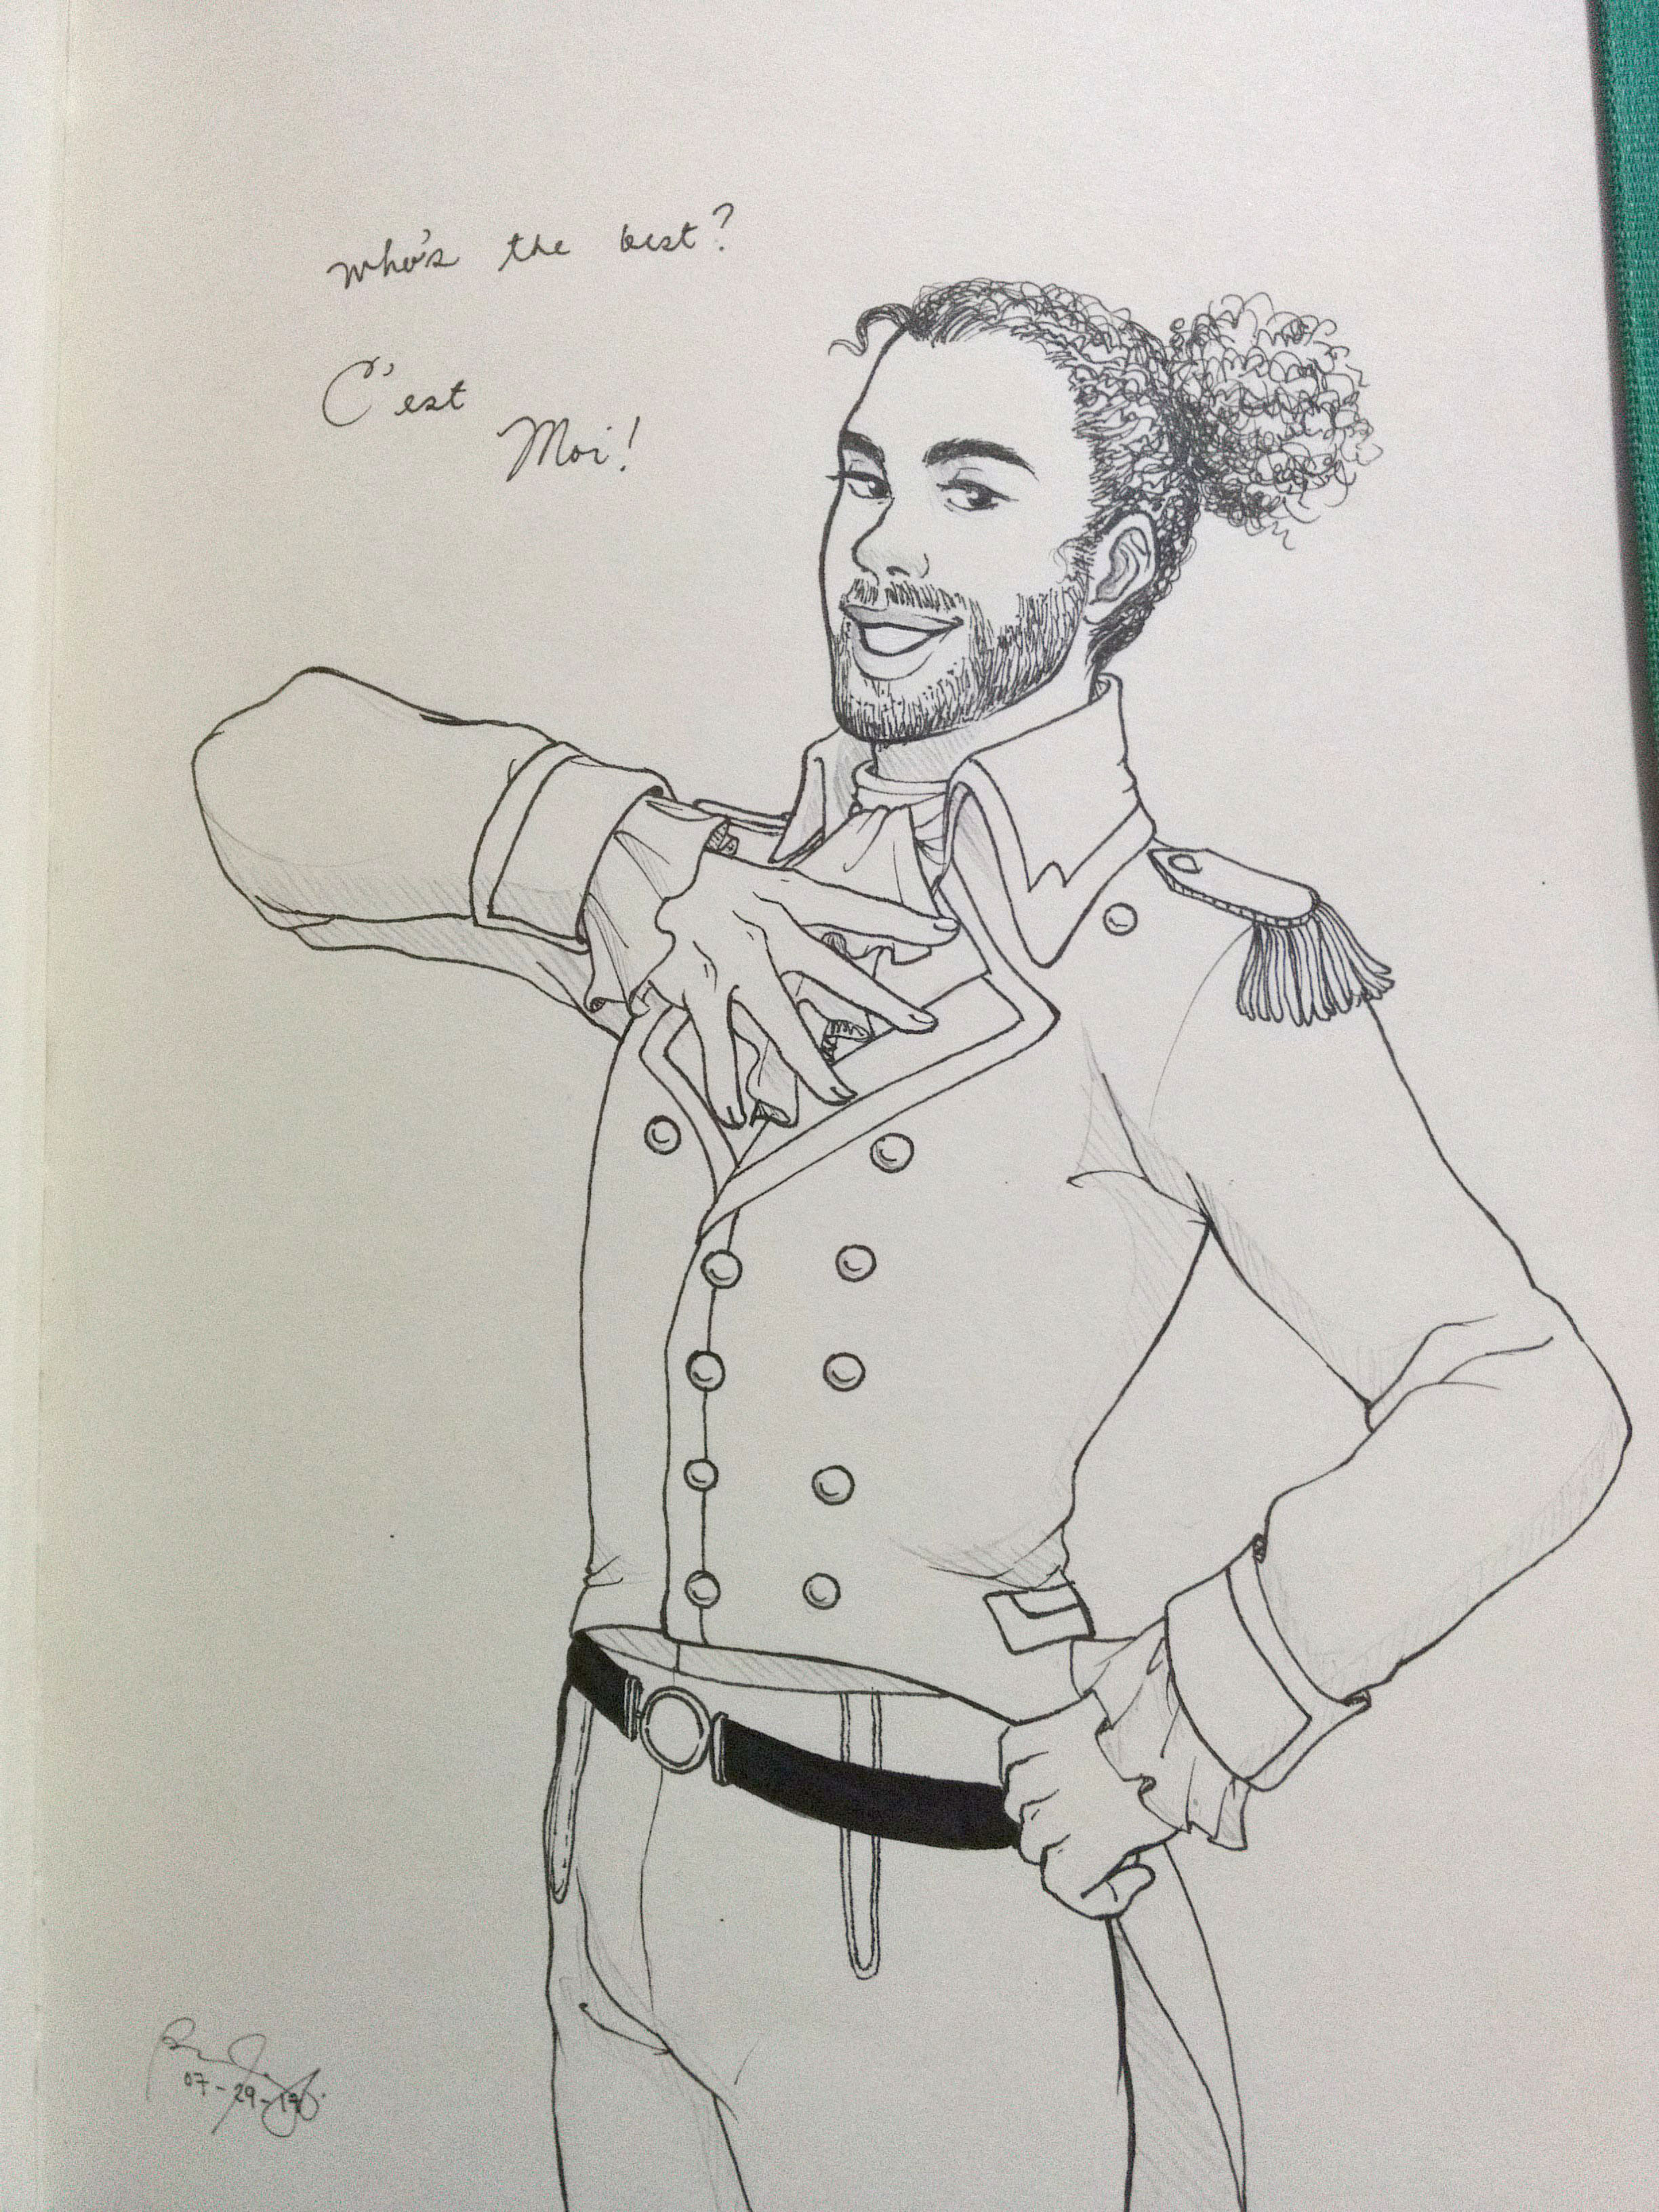 who's the best?
C'est
Moi!
07-29-